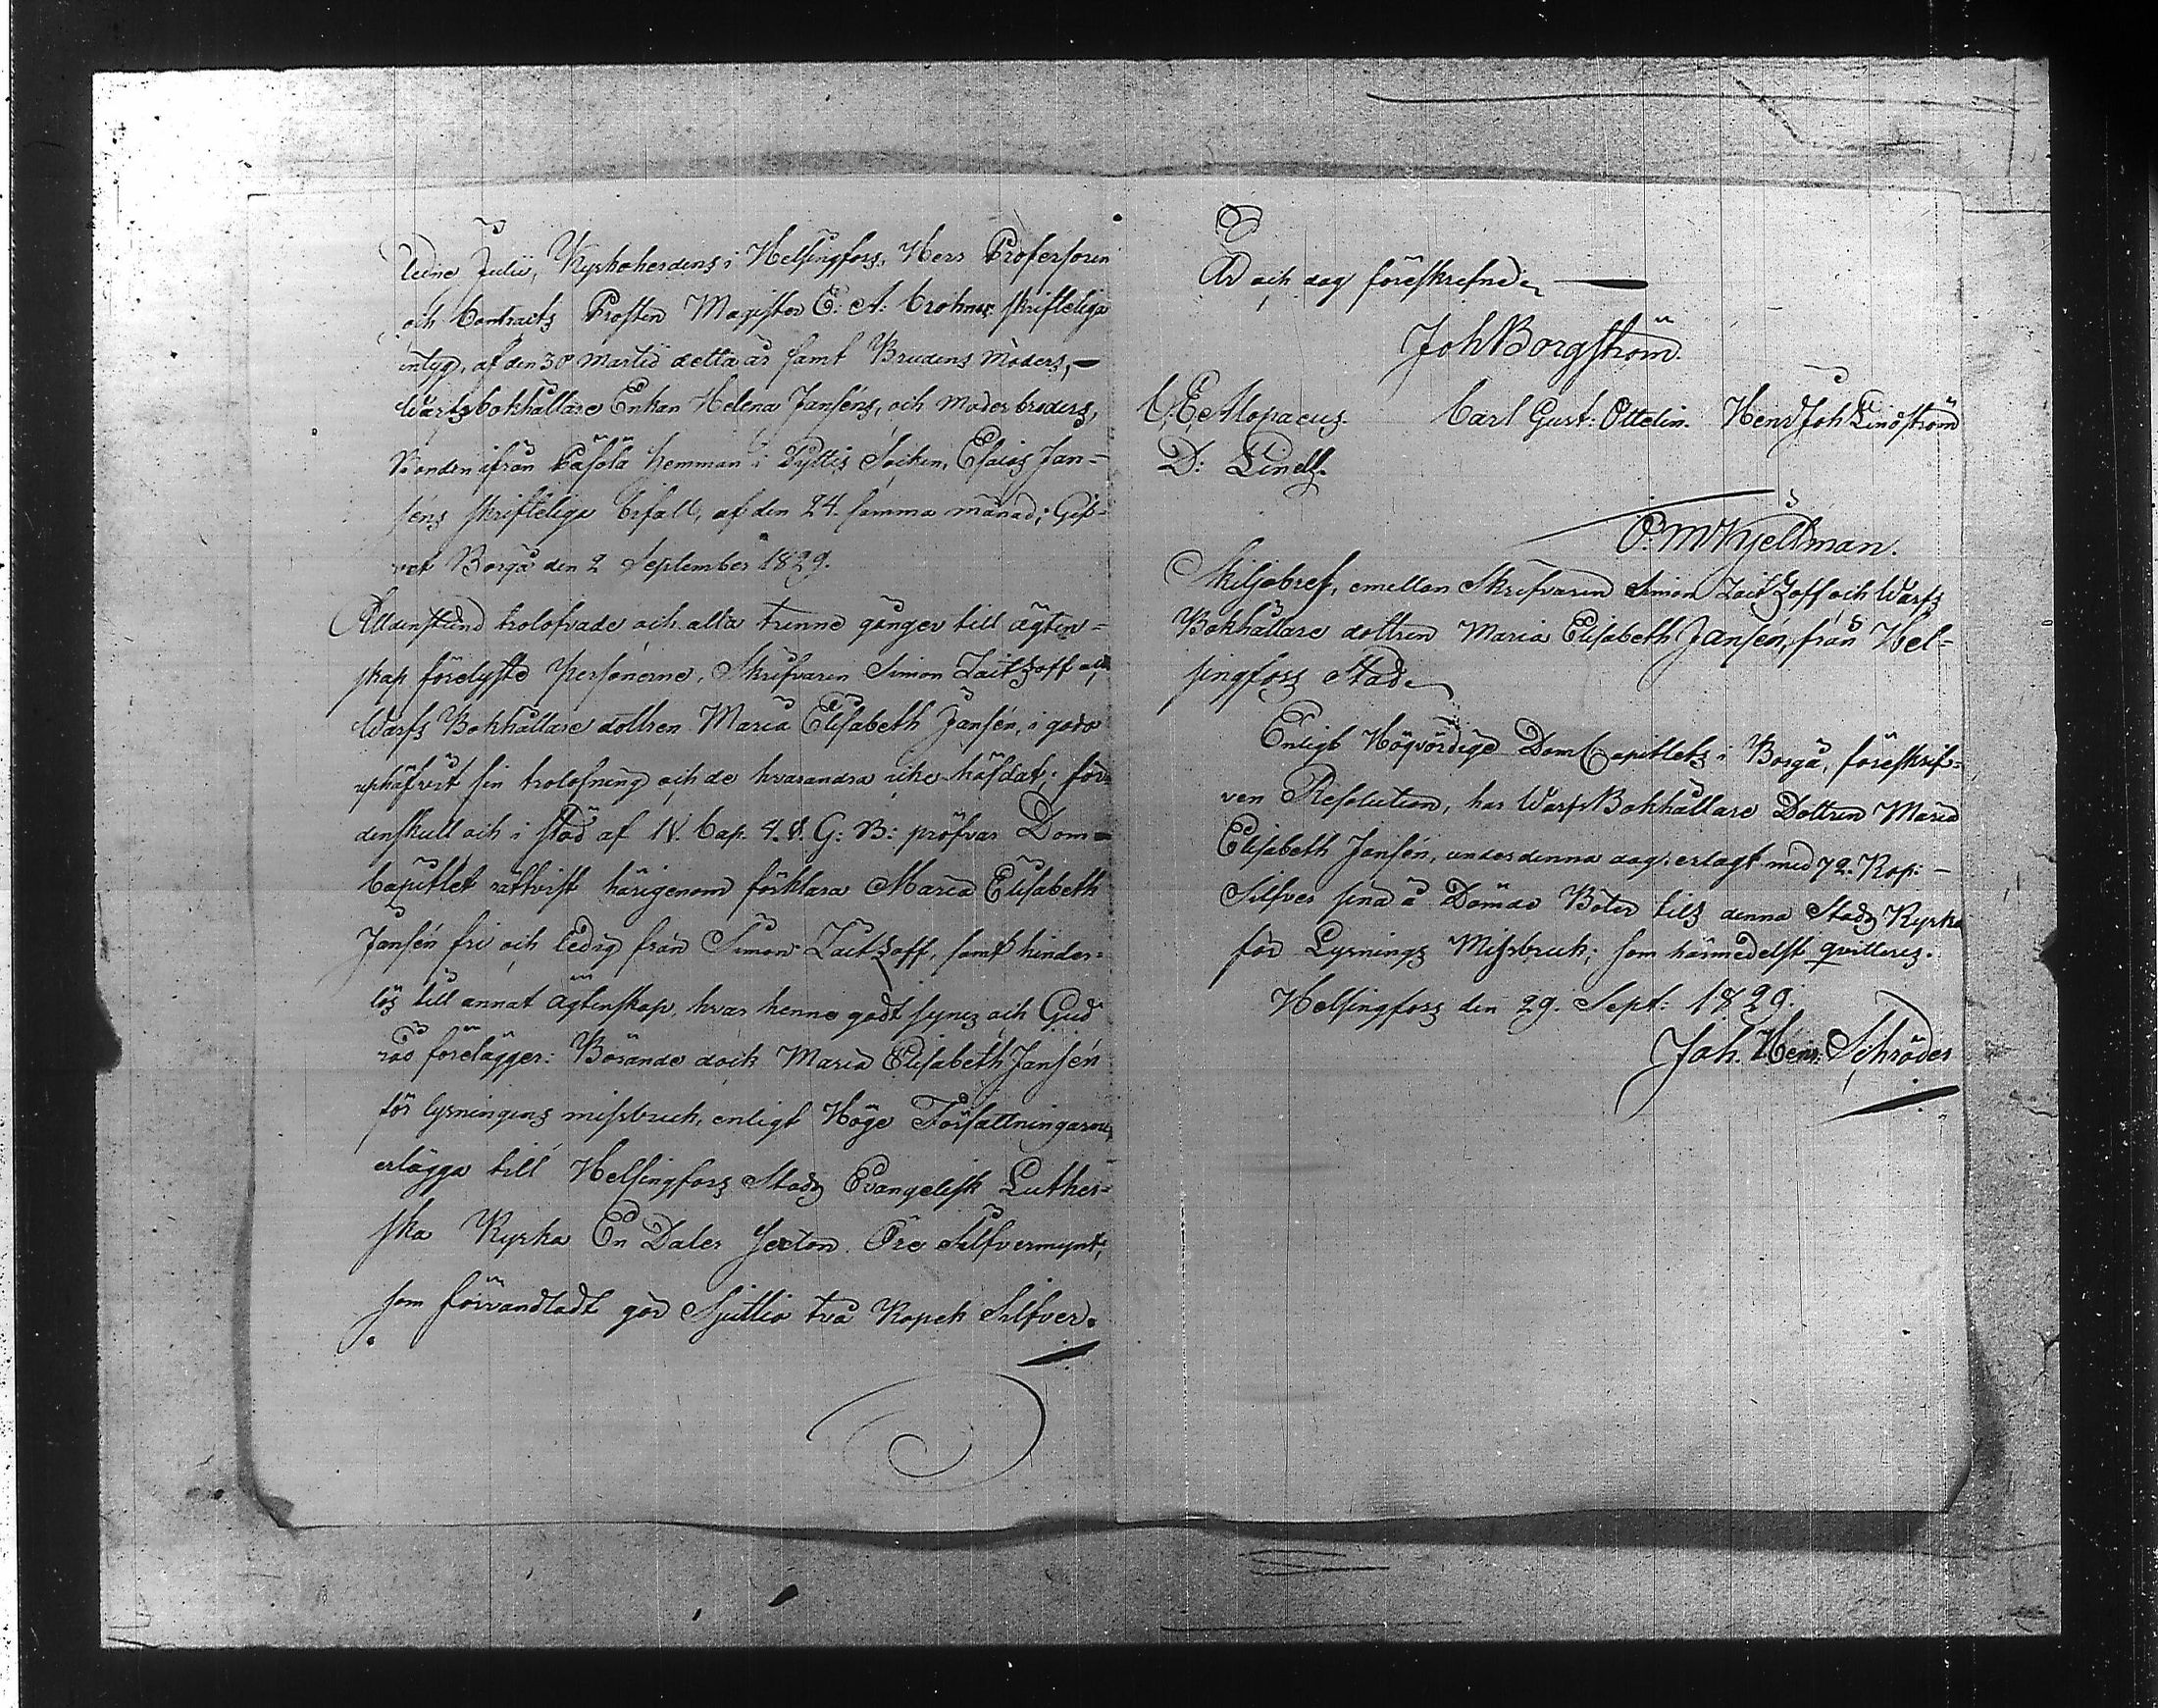 Julii, Kyrkoherdens i Helsingfors, Herr Professoren
och Contracts Prosten Magister E. A. Crohns skriftelige
intyg, af den 30 Martii detta år samt Brudens Moders,
Warfsbokhållare Enkan Helena Janséns, och Moderbroders,
Bonden ifrån Hemman i Pyttis Socken, Esaias Jan-
sens skriftelige bifall, af den 24. samma månad; Gif-
vet Borgå den 2 September 1829.
Alldenstund trolofvade och alla trenne gånger till ägten-
skap förelyste Personerne, Skrifvaren Simon Zaitzoff och
Warfs Bokhållare dottren Maria Elisabeth Jansén, i godo
uphäfvit sin trolofning och de hvarandra icke häfdat; för-
denskull och i stöd af IV. Cap. 4. §. G: B: pröfvar Dom-
Capitlet rättvist härigenom förklara Maria Elisabeth
Jansén fri och ledig från Simon Zaitzoff, samt hinder-
lös till annat ägtenskap, hvar henne godt synes och Gud
råd förelägger: Börande dock Maria Elisabeth Jansén
för lysningens missbruk, enligt Höge Författningarne,
erlägga till Helsingfors Stads Evangelisk Luther-
ska Kyrka En Daler Sexton Öre Silfvermynt,
som förvandladt gör Sjuttio två Kopek Silfver.
År och dag föreskrefne
Joh Borgström
C. E. Alopaeus. Carl Gust: Ottelin. Henr Joh Lindström
D: Lindh.
O. M Kjellman.
Skiljobref, emellan Skrifvaren Simon Zaitzoff och Warfs
Bokhållare dottren Maria Elisabeth Jansén, från Hel-
singfors Stad.
Enligt Högvördige DomCapitlets i Borgå, föreskrif-
ven Resolution, har Warfs Bokhållare Dottren Maria
Elisabeth Jansén, under denna dag erlagt med 72. Kop: -
Silfver sina ådömde Böter till denna Stads Kyrka
för Lysnings Missbruk; som härmedelst qvitteras.
Helsingfors den 29. Sept: 1829.
Joh. Henr: Schröder